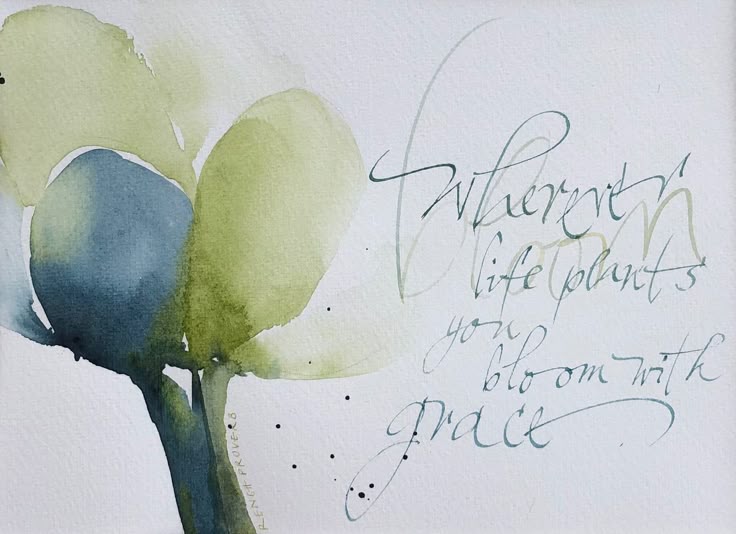 bloom
Wherever
life plants
you
bloom with
grace
RENCH PROVERB